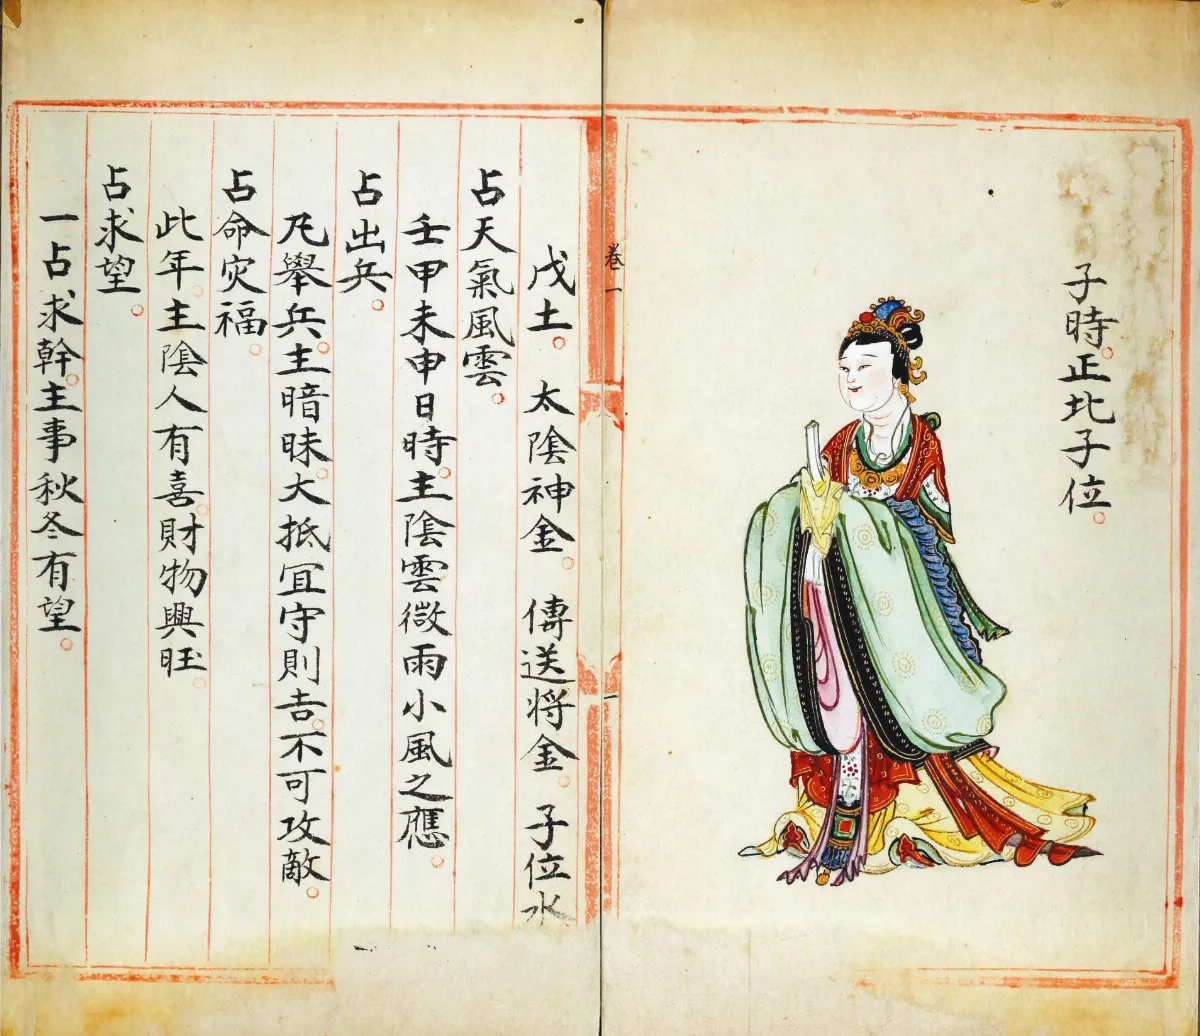 子時正北子位
卷一
一
戊土 太陰神金 傳送将金 子位水
占天氣風雲
壬甲未申日時主陰雲微雨小風之應
占出兵
凡舉兵主暗昧大抵宜守則吉不可攻敵
占命灾福
此年主陰人有喜財物興旺
占求望
一占求幹主事秋冬有望